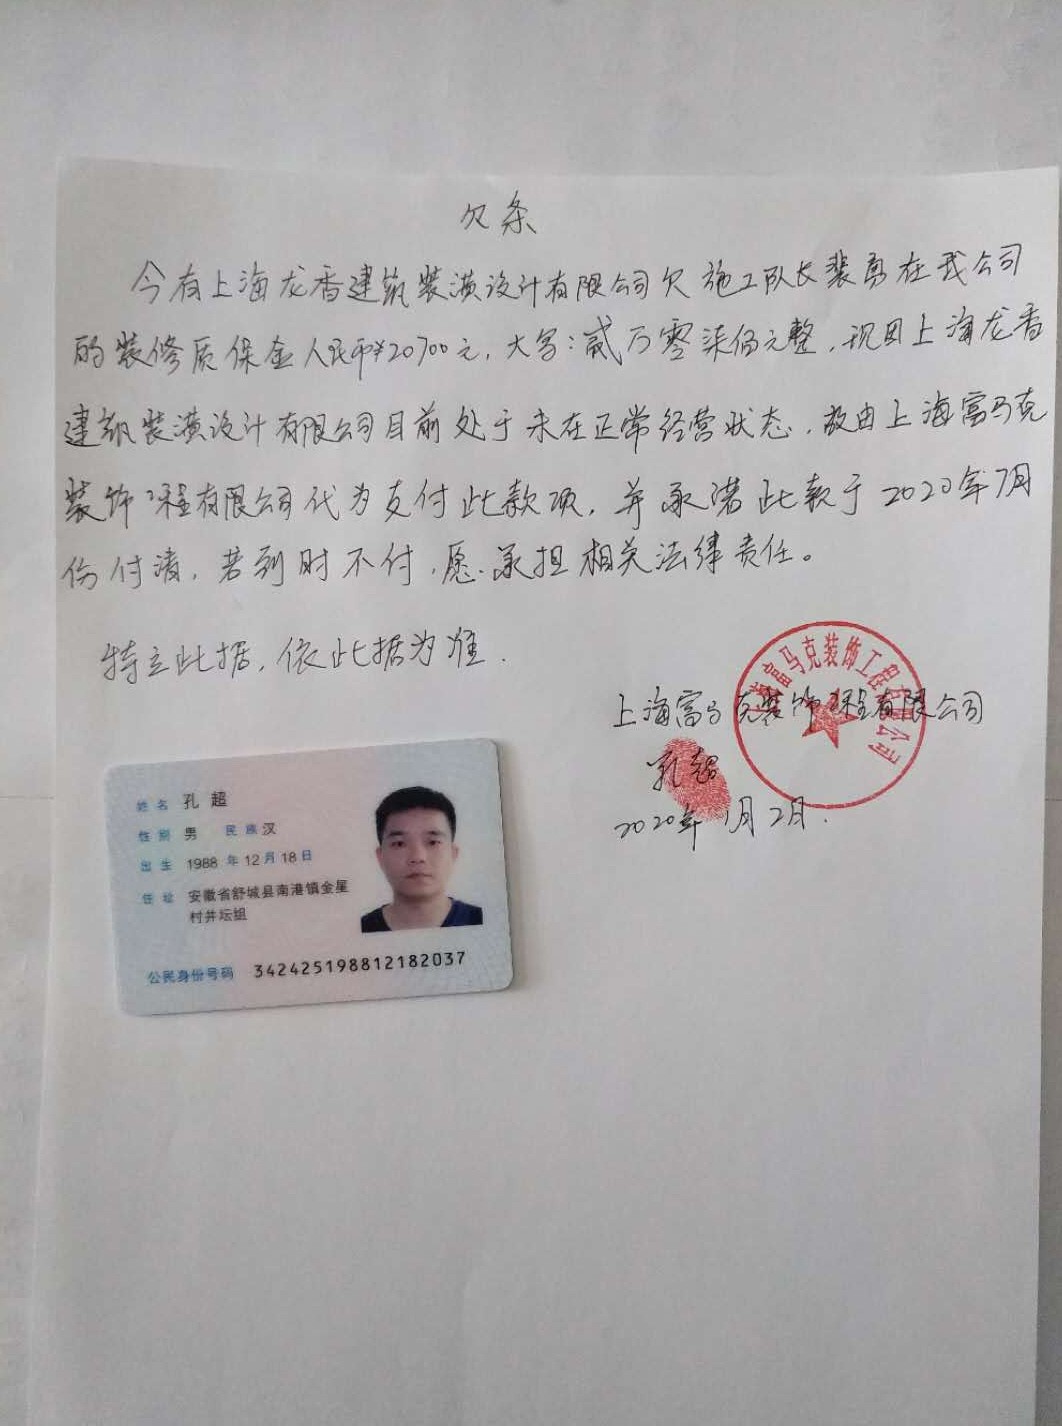 欠条
今有上海龙香建筑装潢设计有限公司欠施工队长裴勇在我公司
的装修质保金人民币¥20700元,大写:贰万零柒佰元整,现因上海龙香
建筑装潢设计有限公司目前处于未在正常经营状态,故由上海富马克
装饰工程有限公司代为支付此款项,并承诺此款于2020年7月
份付清,若到时不付,愿承担相关法律责任。
特立此据,依此据为准.
上海富马克装饰工程有限公司
上海富马克装饰工程有限公司
孔超
2020年1月2月.
姓名 孔超
性别 男 民族 汉
出生 1988年12月18日
住址 安徽省舒城县南港镇金星
村井坛组
公民身份号码 342425198812182037